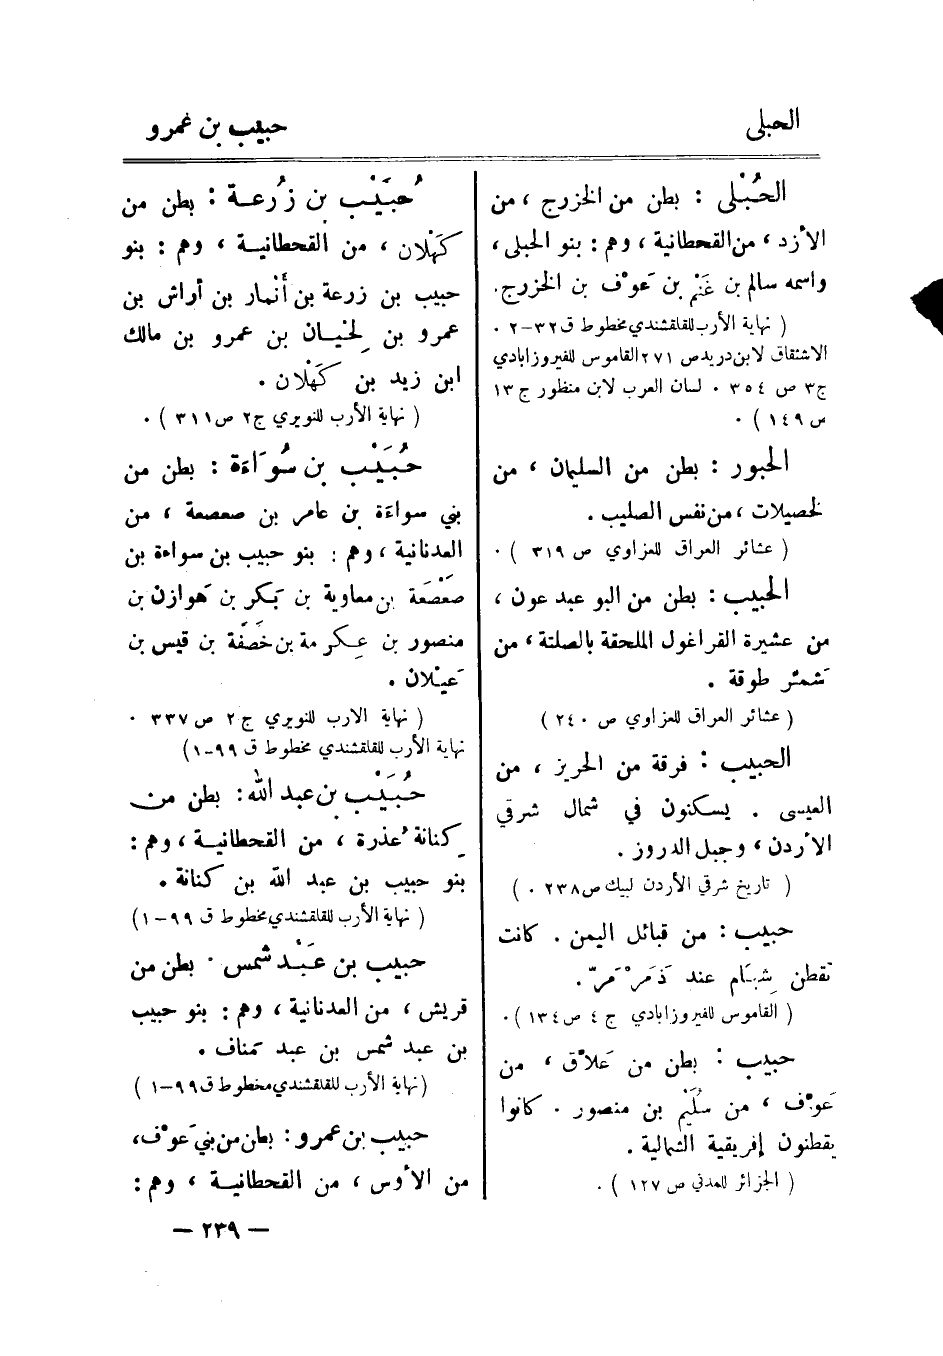 الحبلى
حبيب بن عمرو
الحُبْلى : بطن من الخزرج ، من
الأزد ، من القحطانية ، وهم : بنو الحبلى ،
واسمه سالم بن غَنْم بن عَوْف بن الخزرج.
( نهاية الأرب للقلقشندي مخطوط ق ٣٢-٢ .
الاشتقاق لابن دريد ص ٢٧١ القاموس للفيروزابادي
ج٣ ص ٣٥٤ . لسان العرب لابن منظور ج ١٣
ص ١٤٩ ) .
الحبور : بطن من السليمان ، من
لخصيلات ، من نفس الصليب .
( عشائر العراق للعزاوي ص ٣١٩ ) .
الحبيب : بطن من البو عبد عون ،
من عشيرة القراغول الملحقة بالصلتة ، من
شمّر طوقة .
( عشائر العراق للعزاوي ص ٢٤٠ )
الحبيب : فرقة من الحريز ، من
العيسى . يسكنون في شمال شرقي
الأردن ، وجبل الدروز .
( تاريخ شرقي الأردن لبيك ص ٢٣٨ . )
حبيب : من قبائل اليمن . كانت
تقطن شِبَام عند ذَمَرْمَرّ .
( القاموس للفيروزابادي ج ٤ ص ١٣٤ ) .
حبيب : بطن من عَلاّق ، من
عَوْف ، من سُلَيْم بن منصور . كانوا
يقطنون إفريقية الشمالية .
( الجزائر للمدني ص ١٢٧ ) .
حُبَيْب بن زُرعة : بطن من
كَهْلان ، من القحطانية ، وهم : بنو
حبيب بن زرعة بن أَنْمار بن أراش بن
عمرو بن لِحْيان بن عمرو بن مالك
ابن زيد بن كَهْلان .
( نهاية الأرب للنويري ج٢ ص ٣١١ ) .
حُبَيْب بن سُوَاءَة : بطن من
بني سواءَة بن عامر بن صعصعة ، من
العدنانية ، وهم : بنو حبيب بن سواءة بن
صَعْصَعَة بن معاوية بن بَكْر بن هَوازن بن
منصور بن عِكرمة بن خَصَفَة بن قيس بن
عَيْلان .
( نهاية الارب للنويري ج ٢ ص ٣٣٧ .
نهاية الأرب للقلقشندي مخطوط ق ٩٩-١)
حُبَيْب بن عبد الله : بطن من
كِنانة عُذرة ، من القحطانية ، وهم :
بنو حبيب بن عبد الله بن كنانة .
( نهاية الأرب للقلقشندي مخطوط ق ٩٩-١)
حبيب بن عَبْد شمس . بطن من
قريش ، من العدنانية ، وهم : بنو حبيب
بن عبد شمس بن عبد مناف .
(نهاية الأرب للقلقشندي مخطوط ق ٩٩-١ )
حبيب بن عمرو : بطن من بني عَوْف،
من الأوس ، من القحطانية ، وهم :
— ٢٣٩ —